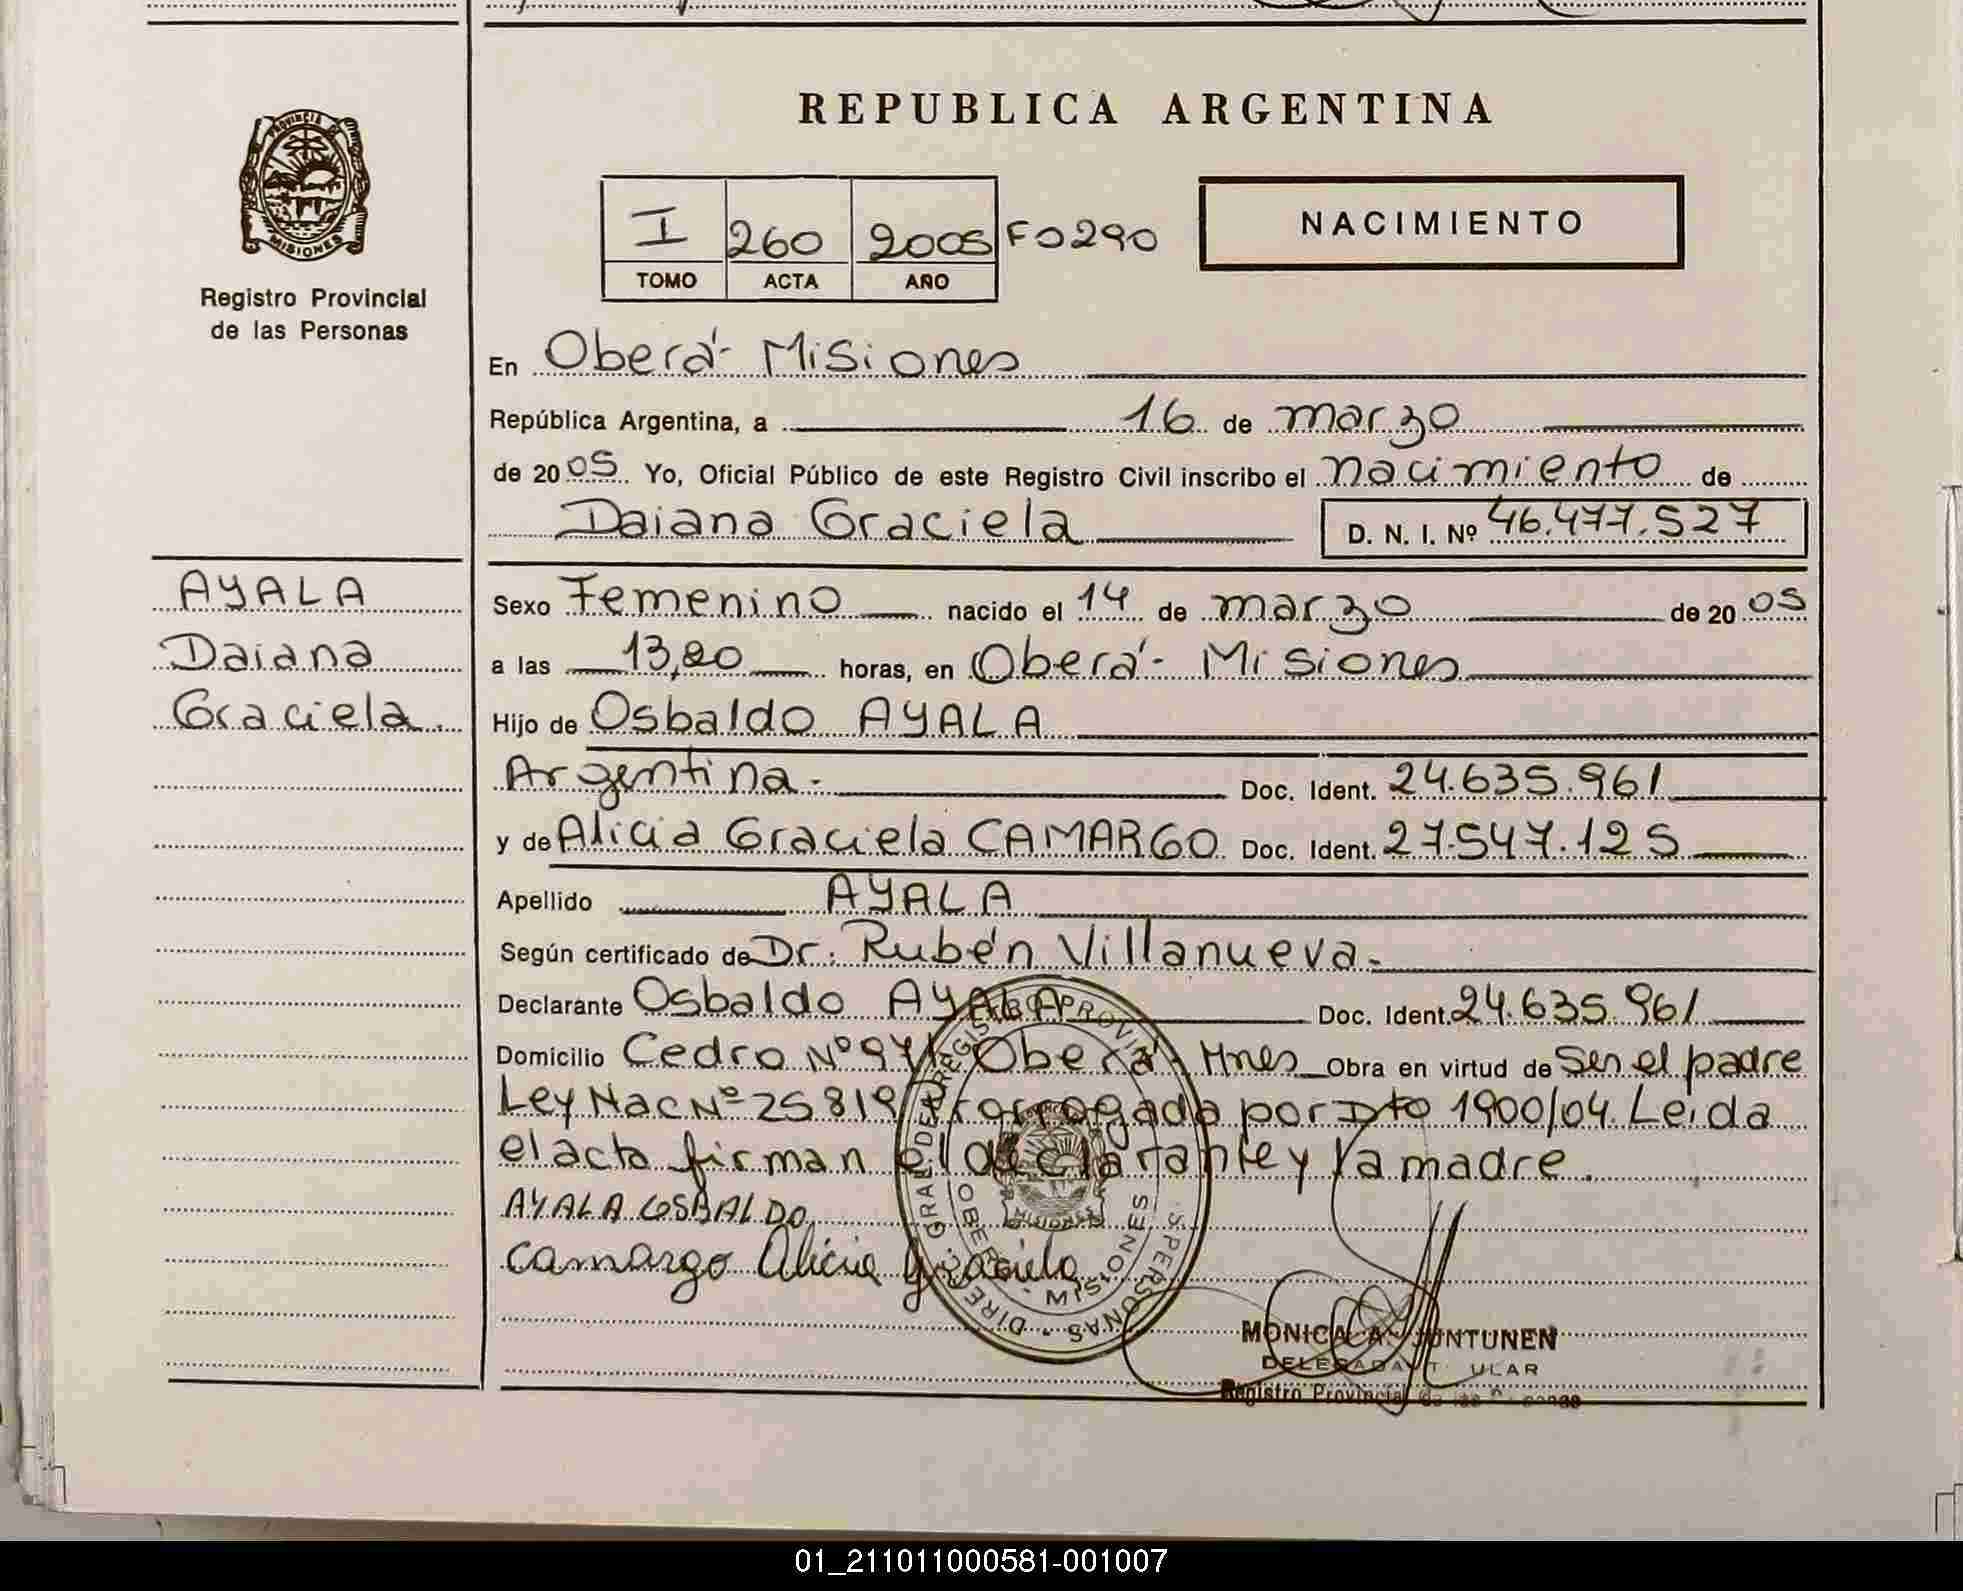 REPUBLICA ARGENTINA
PROVINCIA DE
MISIONES
Registro Provincial
de las Personas
I 260 2005 F0290
TOMO ACTA AÑO
NACIMIENTO
En Oberá - Misiones
República Argentina, a 16 de marzo
de 2005 Yo, Oficial Público de este Registro Civil inscribo el nacimiento de
Daiana Graciela D. N. I. Nº 46.477.527
AYALA
Daiana
Graciela.
Sexo Femenino nacido el 14 de marzo de 2005
a las 13,20 horas, en Oberá - Misiones
Hijo de Osbaldo AYALA
Argentina - Doc. Ident. 24.635.961
y de Alicia Graciela CAMARGO Doc. Ident. 27.547.125
Apellido AYALA
Según certificado de Dr. Rubén Villanueva -
Declarante Osbaldo AYALA Doc. Ident. 24.635.961
Domicilio Cedro Nº 971 Oberá - Mnes Obra en virtud de Ser el padre
Ley Nac Nº 25819 Prorrogada por Dto 1900/04. Leida
el acta firman el declarante y la madre.
AYALA OSBALDO
Camargo Alicia Graciela
DIREC. GRAL. DE REGISTRO PROVINCIAL PERSONAS
OBERÁ - MISIONES
MISIONES
MONICA A. JUNTUNEN
DELEGADA TITULAR
Registro Provincial de las Personas
01_211011000581-001007